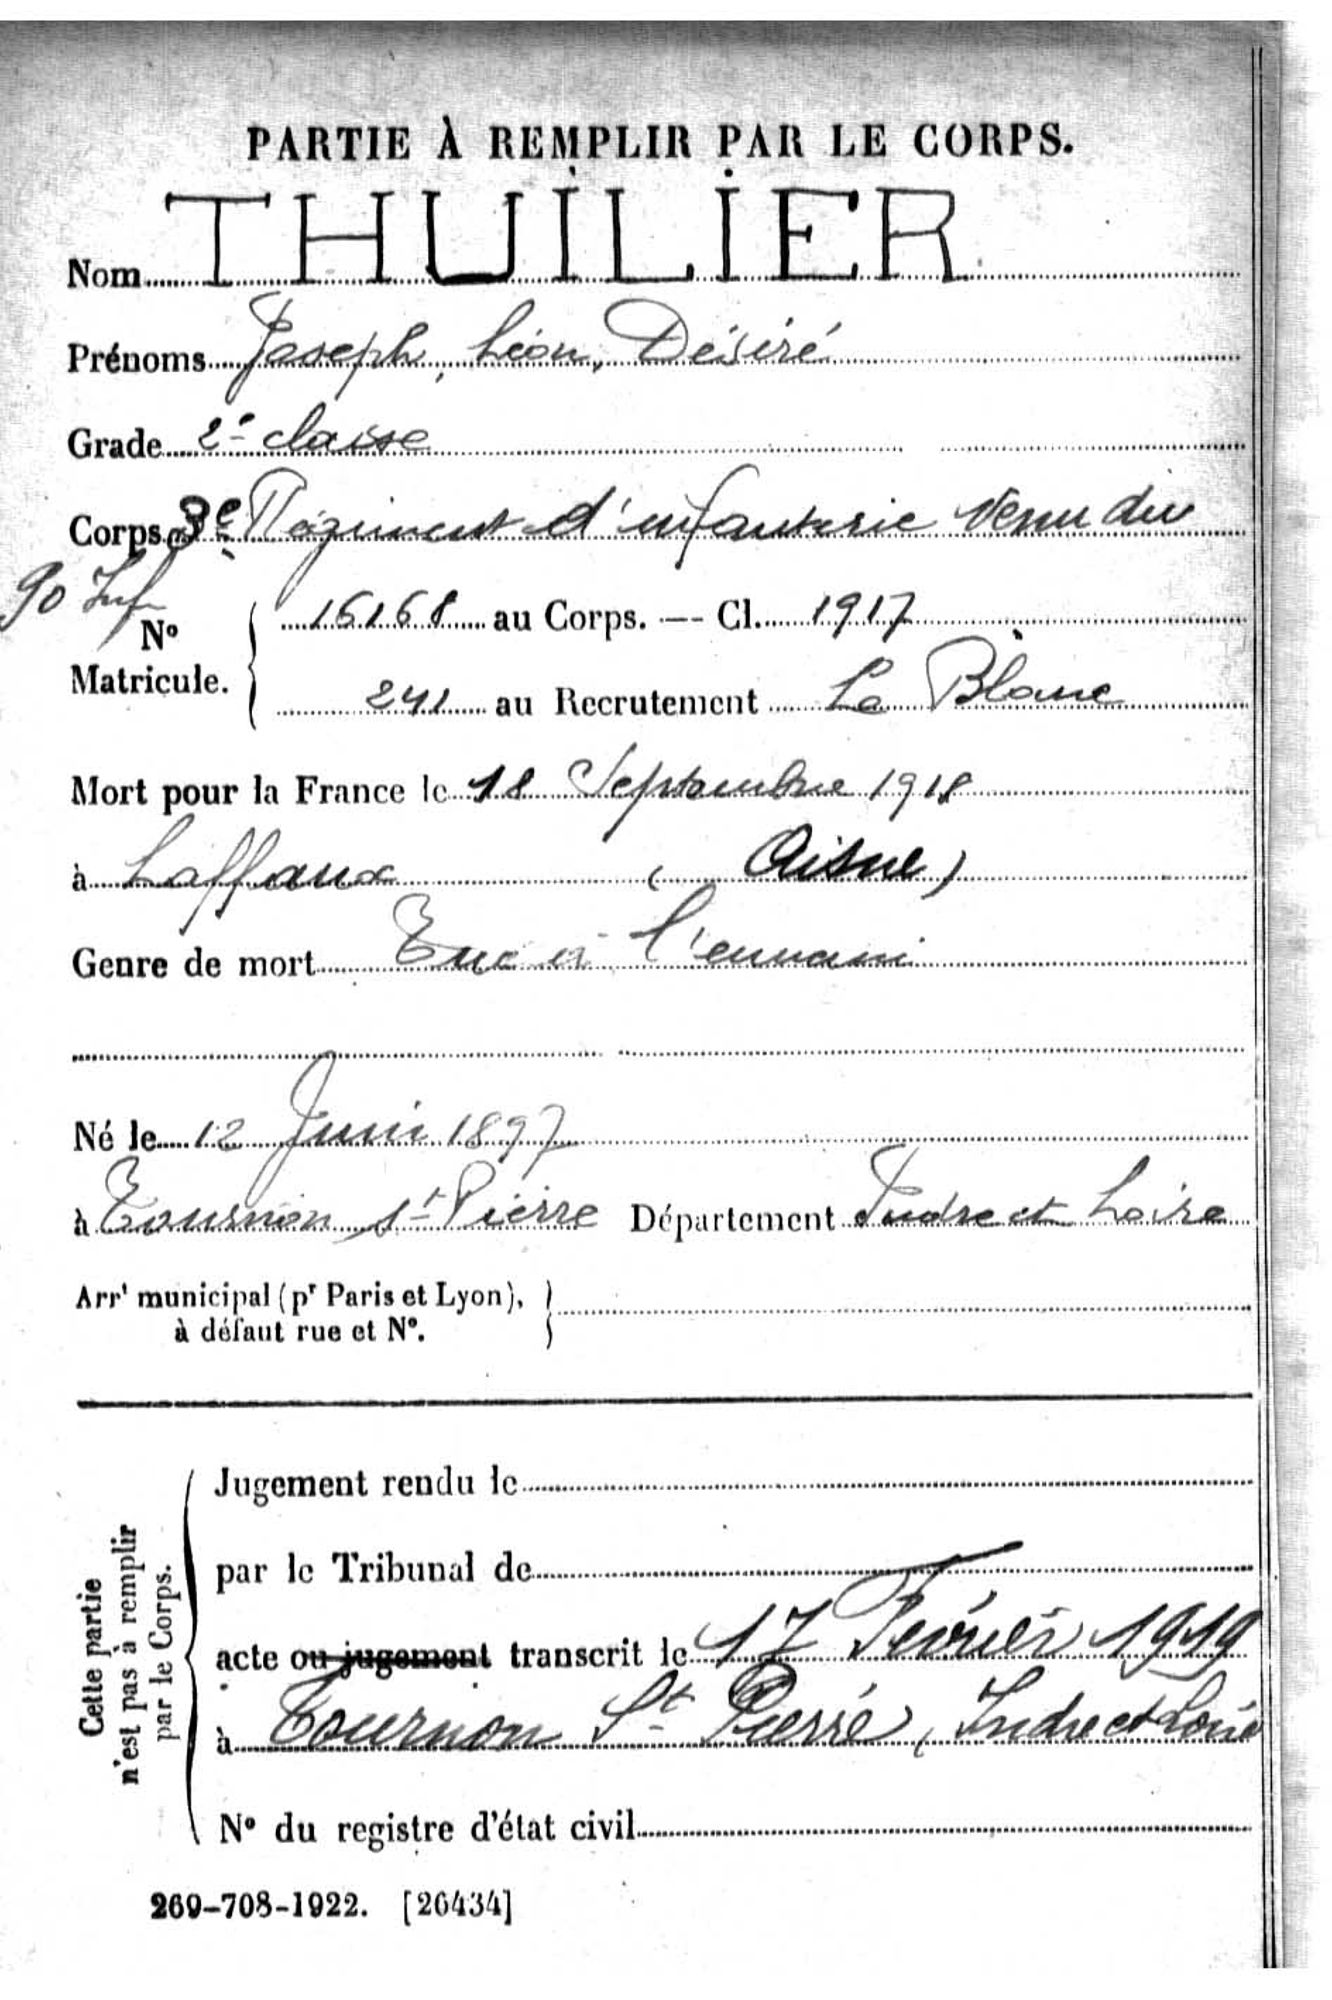 PARTIE À REMPLIR PAR LE CORPS.
Nom THUILIER
Prénoms Joseph, Léon, Désiré
Grade 2e classe
Corps 3e Régiment d'infanterie venu du
90 Inf
N° Matricule. 16168 au Corps. — Cl. 1917
241 au Recrutement Le Blanc
Mort pour la France le 18 Septembre 1918
à Laffaux (Aisne)
Genre de mort Tué à l'ennemi
Né le 12 Juin 1897
à Tournon St Pierre Département Indre et Loire
Arrt municipal (pr Paris et Lyon),
à défaut rue et N°.
Cette partie
n'est pas à remplir
par le Corps.
Jugement rendu le
par le Tribunal de
acte ou jugement transcrit le 17 Février 1919
à Tournon St Pierre, Indre et Loire
N° du registre d'état civil
269-708-1922. [26434]